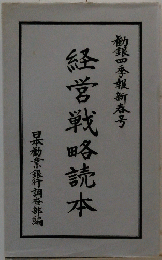 勧銀四季報新春号
経営戦略読本
日本勧業銀行調査部編